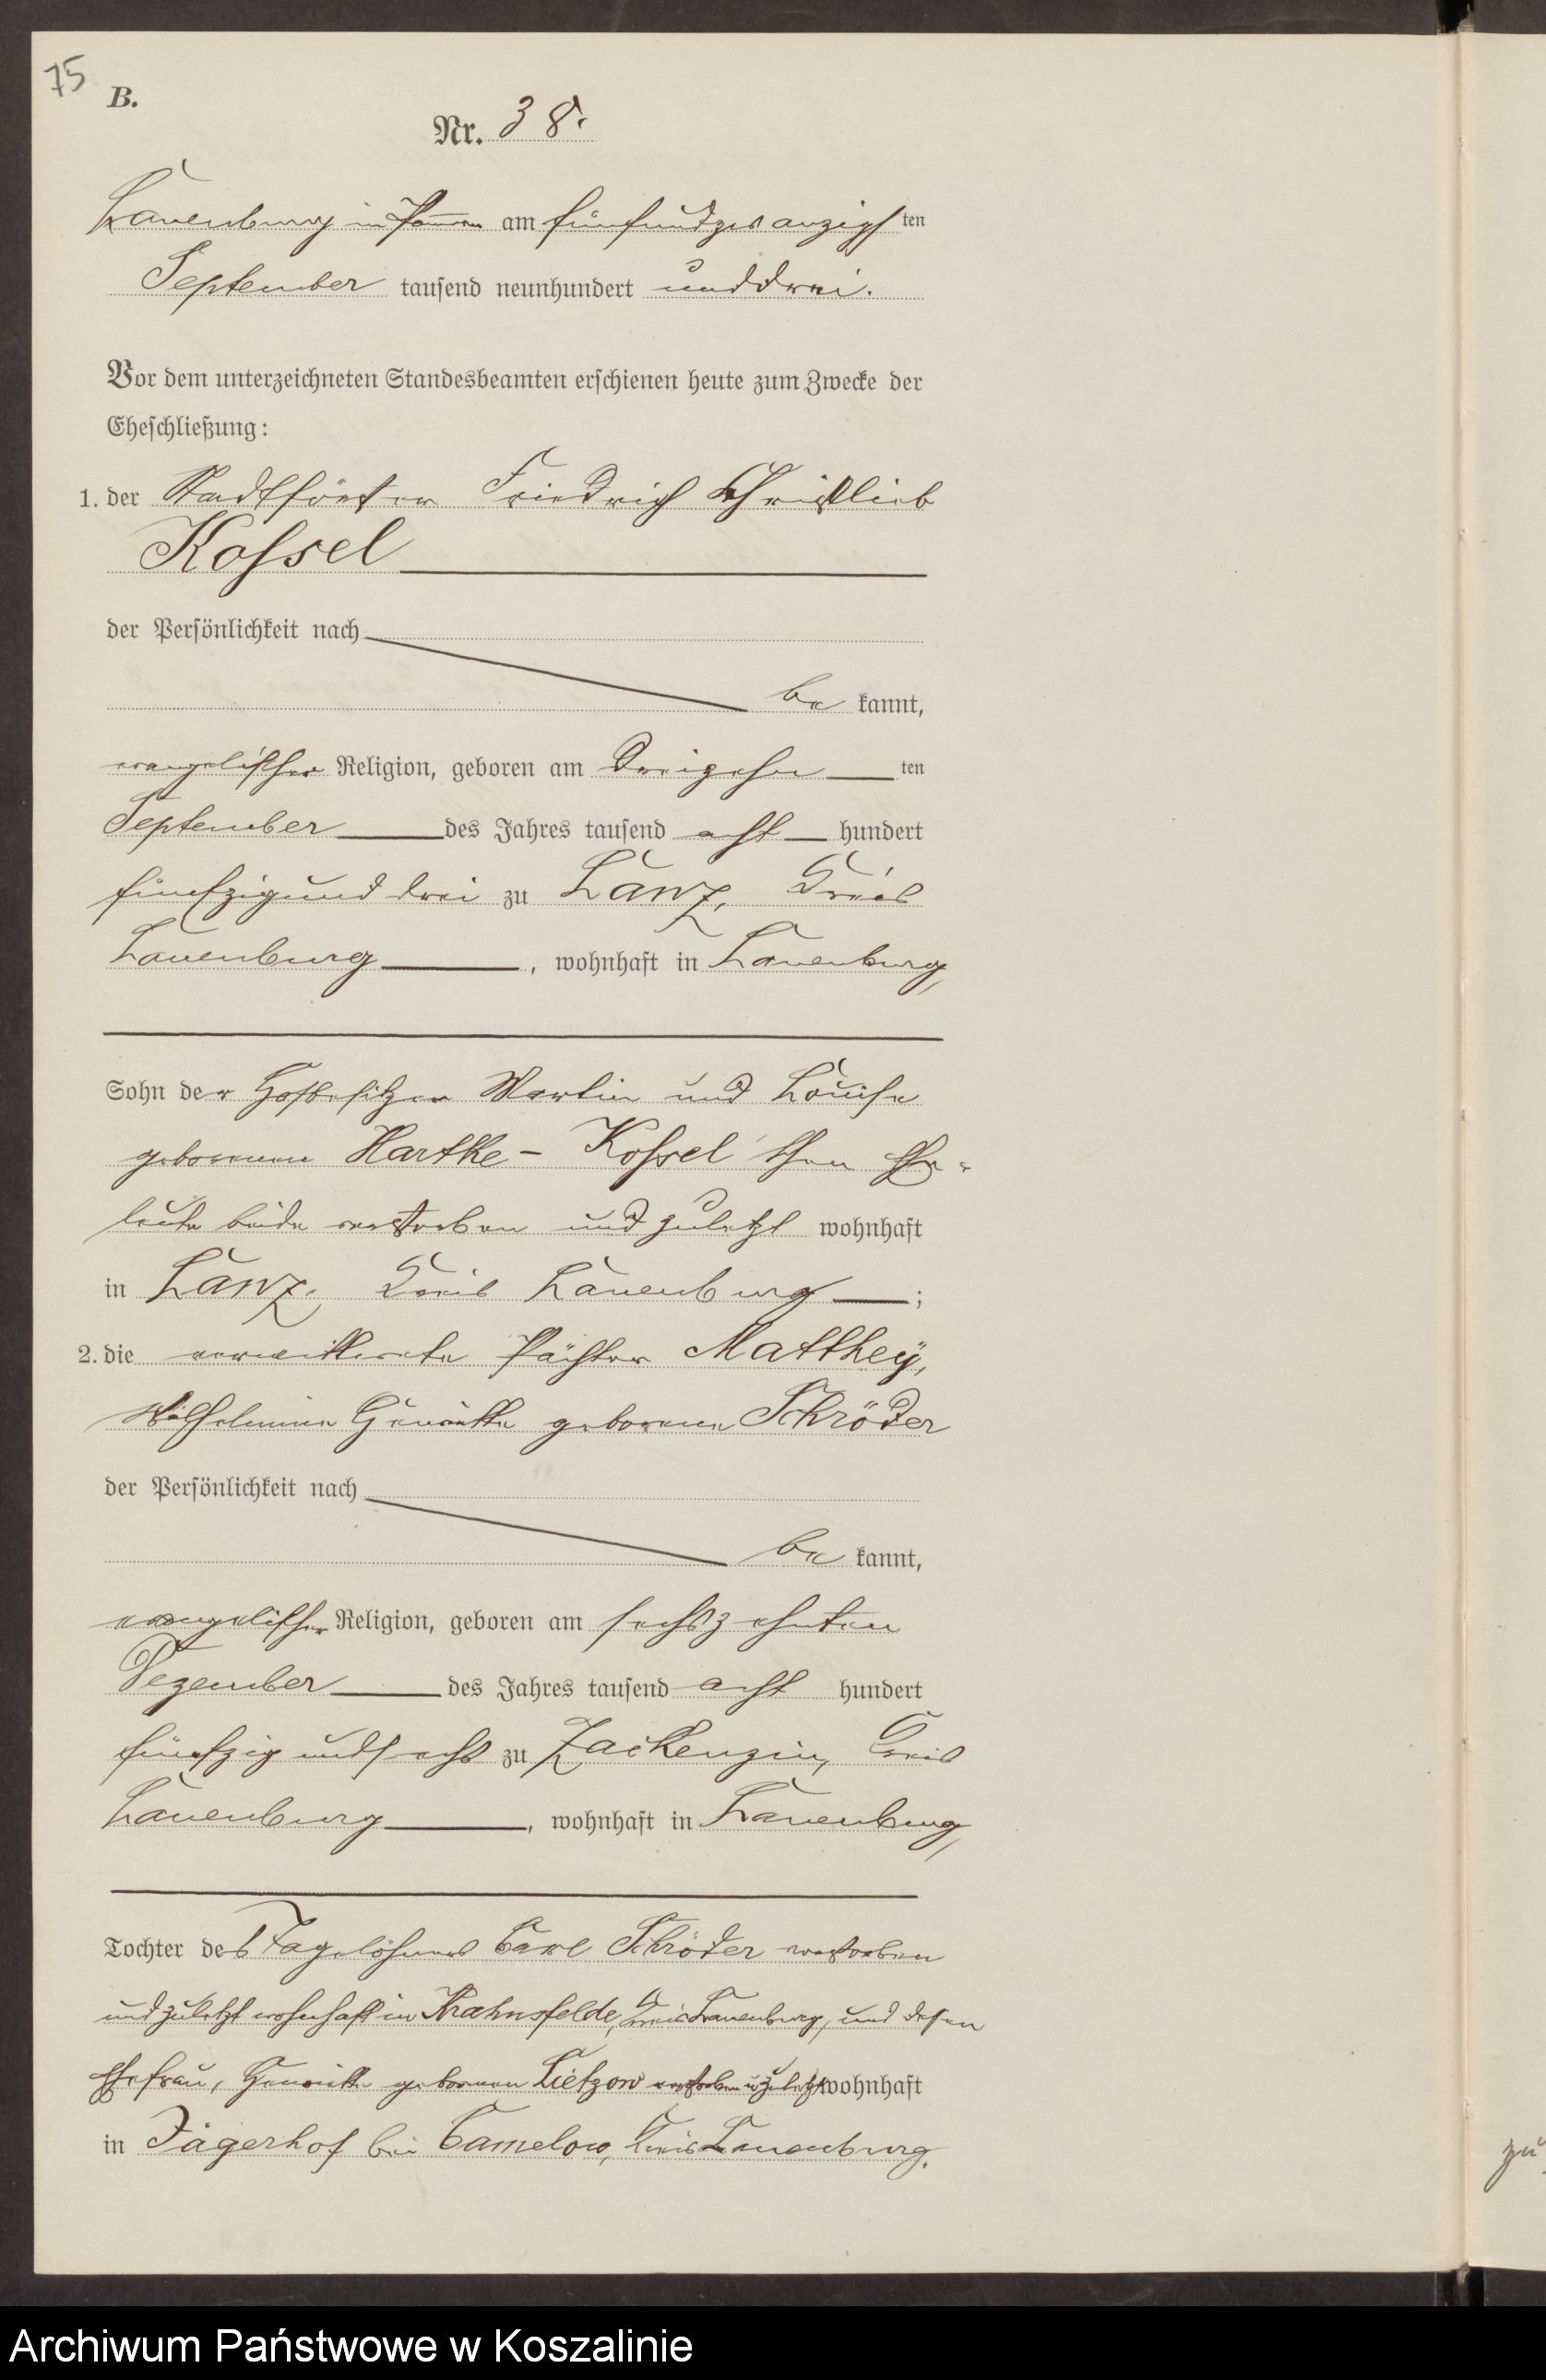 75
B.
Nr. 38.
Lauenburg in Pomm am fünfundzwanzigsten
September tausend neunhundert und drei.
Vor dem unterzeichneten Standesbeamten erschienen heute zum Zwecke der
Eheschließung:
1. der Stadtförster Friedrich Christlieb
Kossel
der Persönlichkeit nach
be kannt,
evangelischer Religion, geboren am dreizehn ten
September des Jahres tausend acht hundert
fünfzig und drei zu Lanz, Kreis
Lauenburg, wohnhaft in Lauenburg,
Sohn der Hofbesitzer Martin und Louise
geborenen Hartke - Kossel'schen Ehe-
leute beide verstorben und zuletzt wohnhaft
in Lanz, Kreis Lauenburg;
2. die verwittwete Pächter Matthey,
Wilhelmine Henriette geborene Schröder
der Persönlichkeit nach
be kannt,
evangelischer Religion, geboren am sechszehnten
Dezember des Jahres tausend acht hundert
fünfzig und sechs zu Zackenzin, Kreis
Lauenburg, wohnhaft in Lauenburg,
Tochter des Tagelöhners Carl Schröder verstorben
und zuletzt wohnhaft in Krahnsfelde, Kreis Lauenburg, und dessen
Ehefrau, Henriette geborenen Lietzow verstorben u zuletzt wohnhaft
in Jägerhof bei Camelow, Kreis Lauenburg.
zu
Archiwum Państwowe w Koszalinie